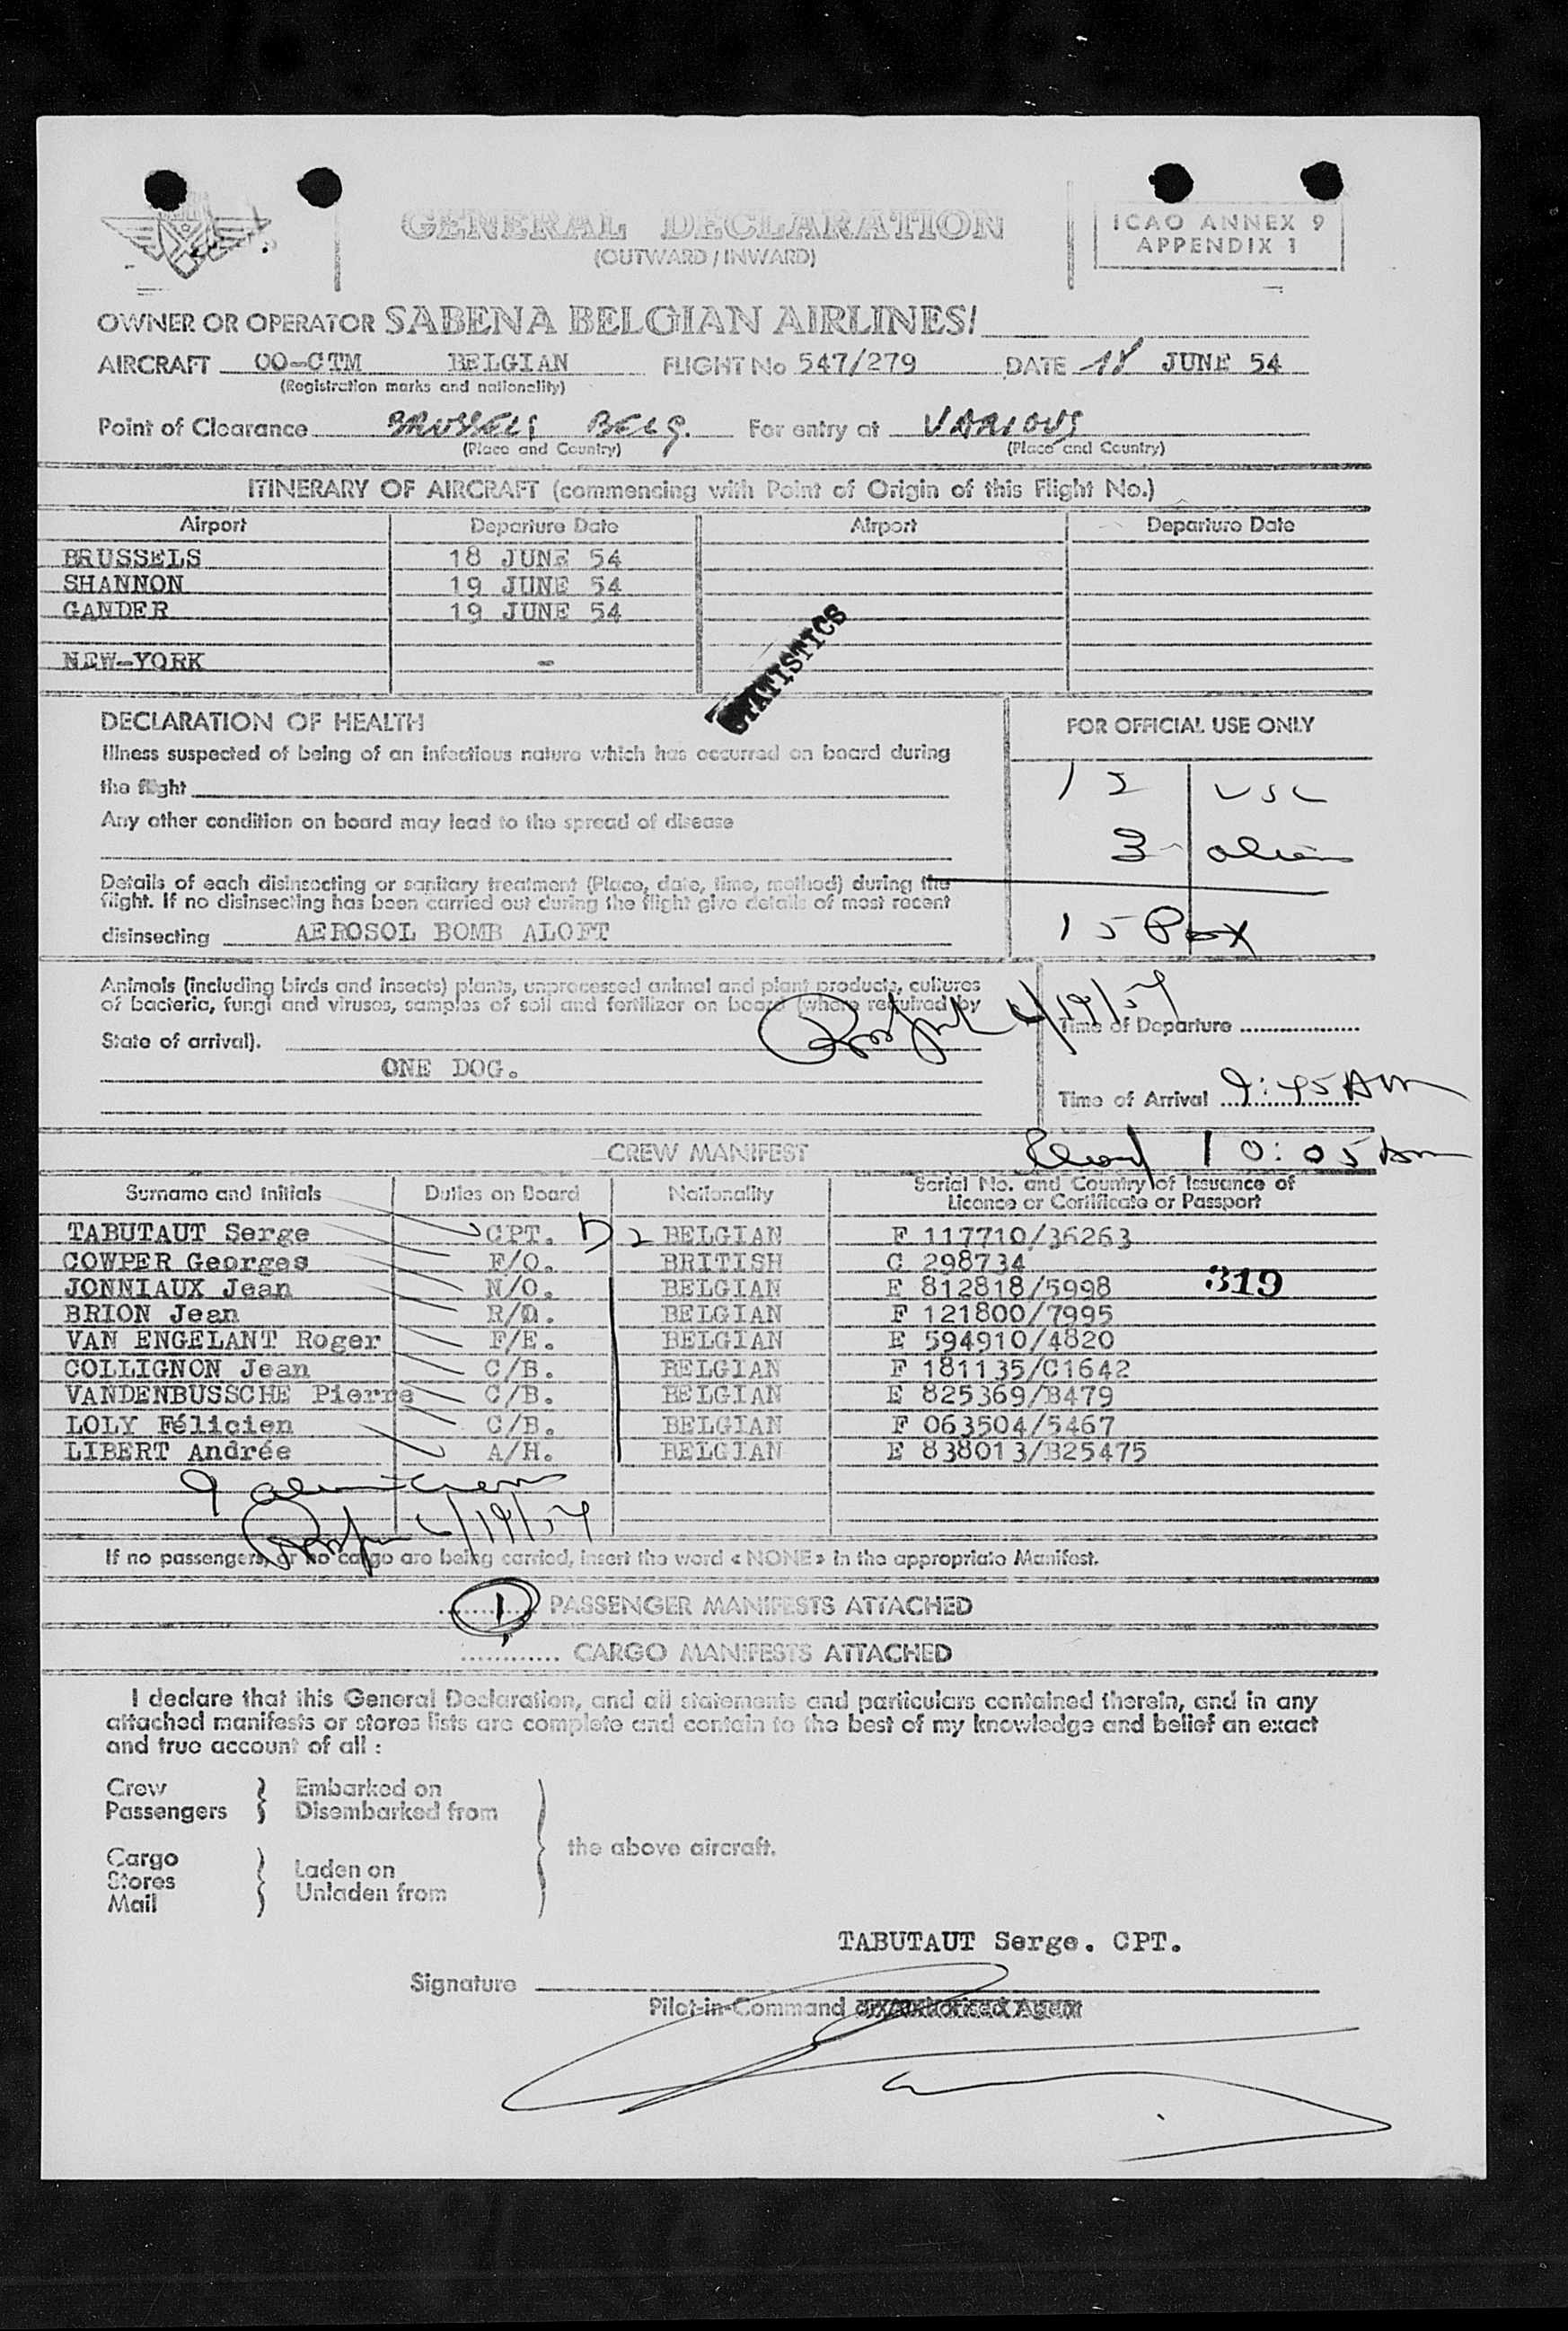 GENERAL DECLARATION
(OUTWARD / INWARD)
ICAO ANNEX 9
APPENDIX 1
OWNER OR OPERATOR SABENA BELGIAN AIRLINES
AIRCRAFT OO-CTM BELGIAN FLIGHT No 547/279 DATE 18 JUNE 54
(Registration marks and nationality)
Point of Clearance BRUSSELS BELG. For entry at VARIOUS
(Place and Country) (Place and Country)
ITINERARY OF AIRCRAFT (commencing with Point of Origin of this Flight No.)
Airport Departure Date Airport Departure Date
BRUSSELS 18 JUNE 54
SHANNON 19 JUNE 54
GANDER 19 JUNE 54
NEW-YORK -
STATISTICS
DECLARATION OF HEALTH
Illness suspected of being of an infectious nature which has occurred on board during
the flight
Any other condition on board may lead to the spread of disease
Details of each disinsecting or sanitary treatment (Place, date, time, method) during the
flight. If no disinsecting has been carried out during the flight give details of most recent
disinsecting AEROSOL BOMB ALOFT
FOR OFFICIAL USE ONLY
12 USC
3 aliens
15 Pax
Animals (including birds and insects) plants, unprocessed animal and plant products, cultures
of bacteria, fungi and viruses, samples of soil and fertilizer on board (where required by
State of arrival).
ONE DOG.
6/19/54
Time of Departure
Time of Arrival 9:45 AM
10:05 Am
CREW MANIFEST
Surname and Initials Duties on Board Nationality Serial No. and Country of Issuance of
Licence or Certificate or Passport
TABUTAUT Serge CPT. D2 BELGIAN F 117710/36263
COWPER Georges F/O. BRITISH C 298734
JONNIAUX Jean N/O. BELGIAN E 812818/5998 319
BRION Jean R/O. BELGIAN F 121800/7995
VAN ENGELANT Roger F/E. BELGIAN E 594910/4820
COLLIGNON Jean C/B. BELGIAN F 181135/C1642
VANDENBUSSCHE Pierre C/B. BELGIAN E 825369/B479
LOLY Félicien C/B. BELGIAN F 063504/5467
LIBERT Andrée A/H. BELGIAN E 838013/B25475
9 alien crew
6/19/54
If no passengers, or no cargo are being carried, insert the word « NONE » in the appropriate Manifest.
1 PASSENGER MANIFESTS ATTACHED
CARGO MANIFESTS ATTACHED
I declare that this General Declaration, and all statements and particulars contained therein, and in any
attached manifests or stores lists are complete and contain to the best of my knowledge and belief an exact
and true account of all :
Crew Embarked on
Passengers Disembarked from
the above aircraft.
Cargo
Stores Laden on
Mail Unladen from
TABUTAUT Serge. CPT.
Signature
Pilot-in-Command or Authorized Agent